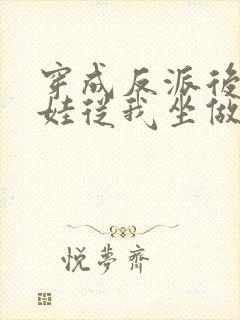 穿成反派後
娃從我坐做
悦夢齋